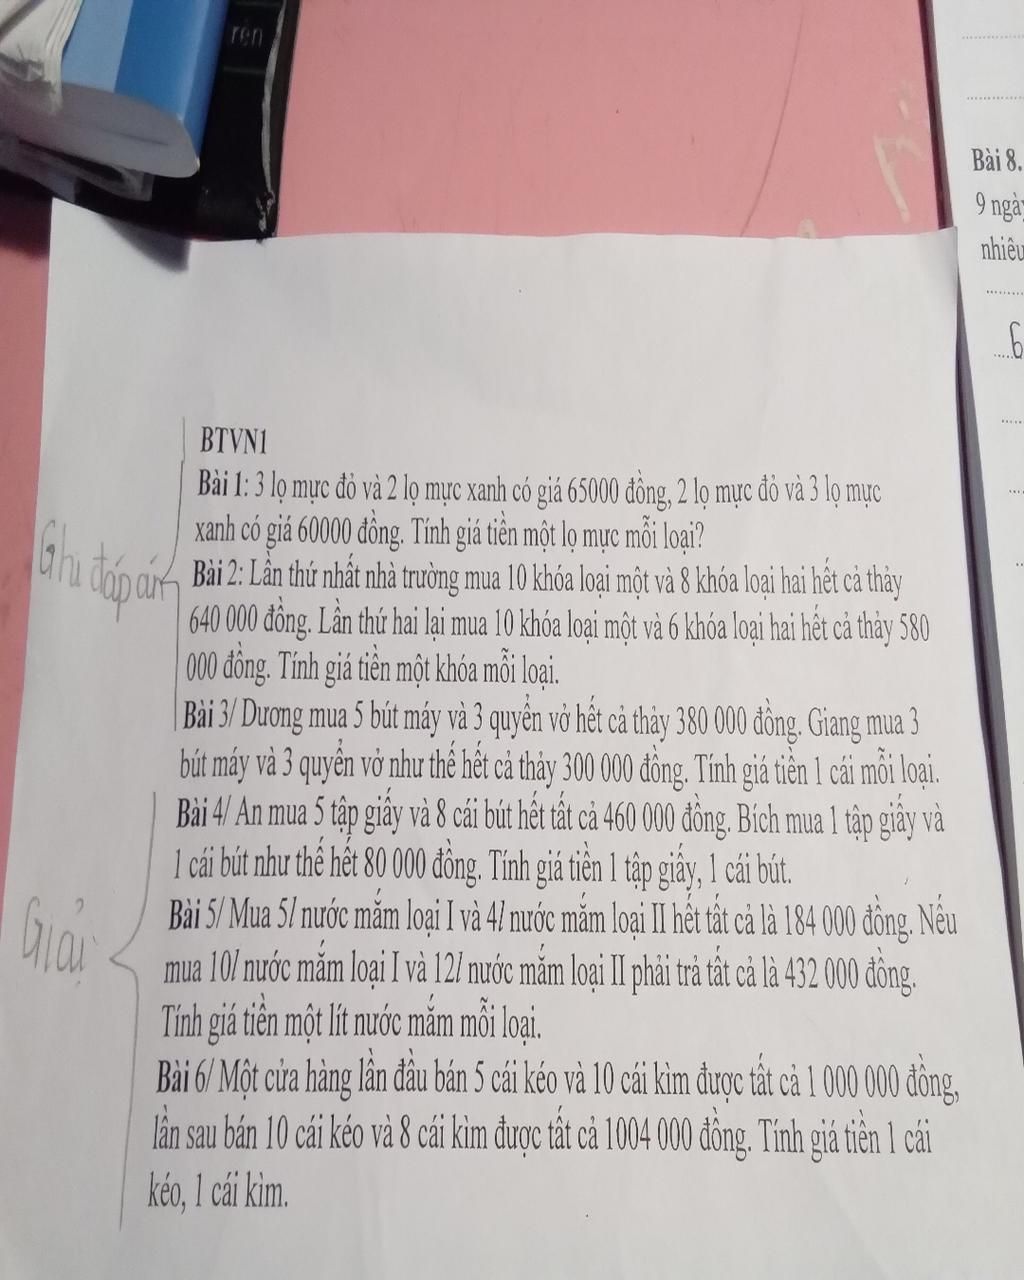 rén
Bài 8.
9 ngày
nhiêu
6
BTVN1
Bài 1: 3 lọ mực đỏ và 2 lọ mực xanh có giá 65000 đồng, 2 lọ mực đỏ và 3 lọ mực
xanh có giá 60000 đồng. Tính giá tiền một lọ mực mỗi loại?
Ghi đáp án
Bài 2: Lần thứ nhất nhà trường mua 10 khóa loại một và 8 khóa loại hai hết cả thảy
640 000 đồng. Lần thứ hai lại mua 10 khóa loại một và 6 khóa loại hai hết cả thảy 580
000 đồng. Tính giá tiền một khóa mỗi loại.
Bài 3/ Dương mua 5 bút máy và 3 quyển vở hết cả thảy 380 000 đồng. Giang mua 3
bút máy và 3 quyển vở như thế hết cả thảy 300 000 đồng. Tính giá tiền 1 cái mỗi loại.
Bài 4/ An mua 5 tập giấy và 8 cái bút hết tất cả 460 000 đồng. Bích mua 1 tập giấy và
1 cái bút như thế hết 80 000 đồng. Tính giá tiền 1 tập giấy, 1 cái bút.
Giải
Bài 5/ Mua 5l nước mắm loại I và 4l nước mắm loại II hết tất cả là 184 000 đồng. Nếu
mua 10l nước mắm loại I và 12l nước mắm loại II phải trả tất cả là 432 000 đồng.
Tính giá tiền một lít nước mắm mỗi loại.
Bài 6/ Một cửa hàng lần đầu bán 5 cái kéo và 10 cái kìm được tất cả 1 000 000 đồng,
lần sau bán 10 cái kéo và 8 cái kìm được tất cả 1004 000 đồng. Tính giá tiền 1 cái
kéo, 1 cái kìm.